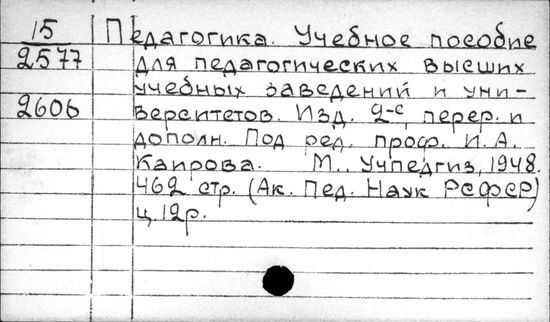 15 Педагогика. Учебное пособие
2577 для педагогических высших
учебных заведений и уни-
2606 верситетов. Изд. 2-е, перер. и
дополн. Под ред. проф. И. А.
Каирова. М., Учпедгиз, 1948.
462 стр. (Ак. Пед. Наук РСФСР)
ц. 12р.